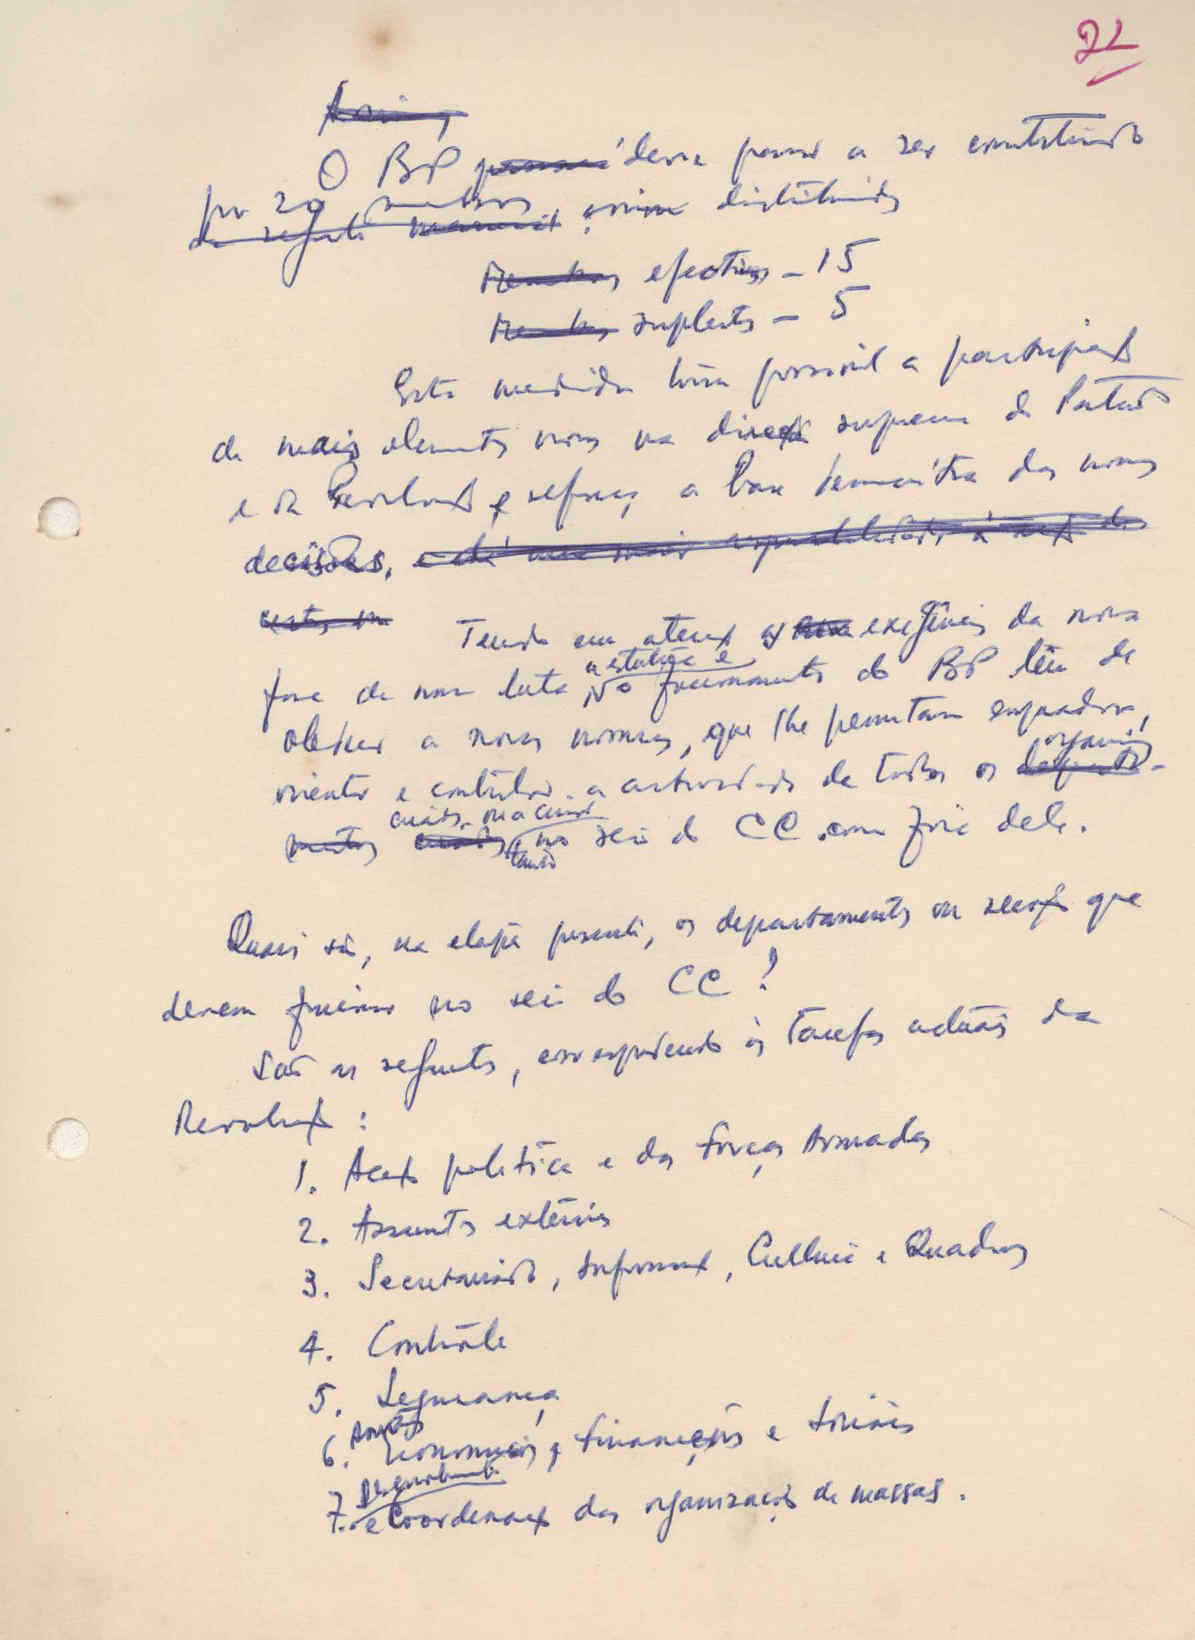 22
Assim,
O BP passará deve passar a ser constituído
por 20 membros
da seguinte maneira: assim distribuídos
Membros efectivos – 15
Membros suplentes – 5
Esta medida torna possível a participação
de mais elementos novos na direcção suprema do Partido
e da Revolução e reforça a base democrática das nossas
decisões, e dá uma mais
Tendo em atenção as exigências da nova
fase da nossa luta, a estrutura e o funcionamento do BP têm de
obedecer a novas normas, que lhe permitam enquadrar,
orientar e controlar a actividade de todos os departa- organis
mentos criados ou a criar tanto no seio do CC como fora dele.
Quais são, na etapa presente, os departamentos ou secções que
devem funcionar no seio do CC?
São os seguintes, correspondendo às tarefas actuais da
Revolução:
1. Acção política e das Forças Armadas
2. Assuntos exteriores
3. Secretariado, Informação, Cultura e Quadros
4. Contrôle
5. Segurança
6. Assuntos Económicos, financeiros e sociais
7. Desenvolvimento
e Coordenação das organizações de massas.